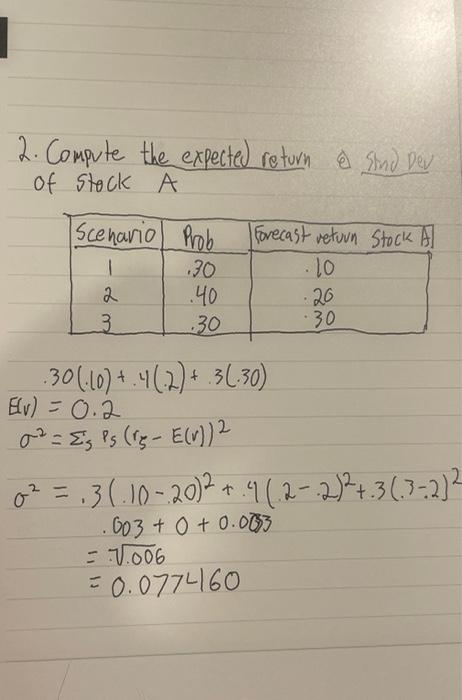 2. Compute the expected return & Stnd Dev
of Stock A
Scenario Prob Forecast return Stock A
1 .30 .10
2 .40 .20
3 .30 .30
.30(.10) + .4(.2) + .3(.30)
E(r) = 0.2
σ² = Σs Ps (rs - E(r))²
σ² = .3(.10-.20)² + .4(.2-.2)² + .3(.3-.2)²
.003 + 0 + 0.003
= √.006
= 0.0774160